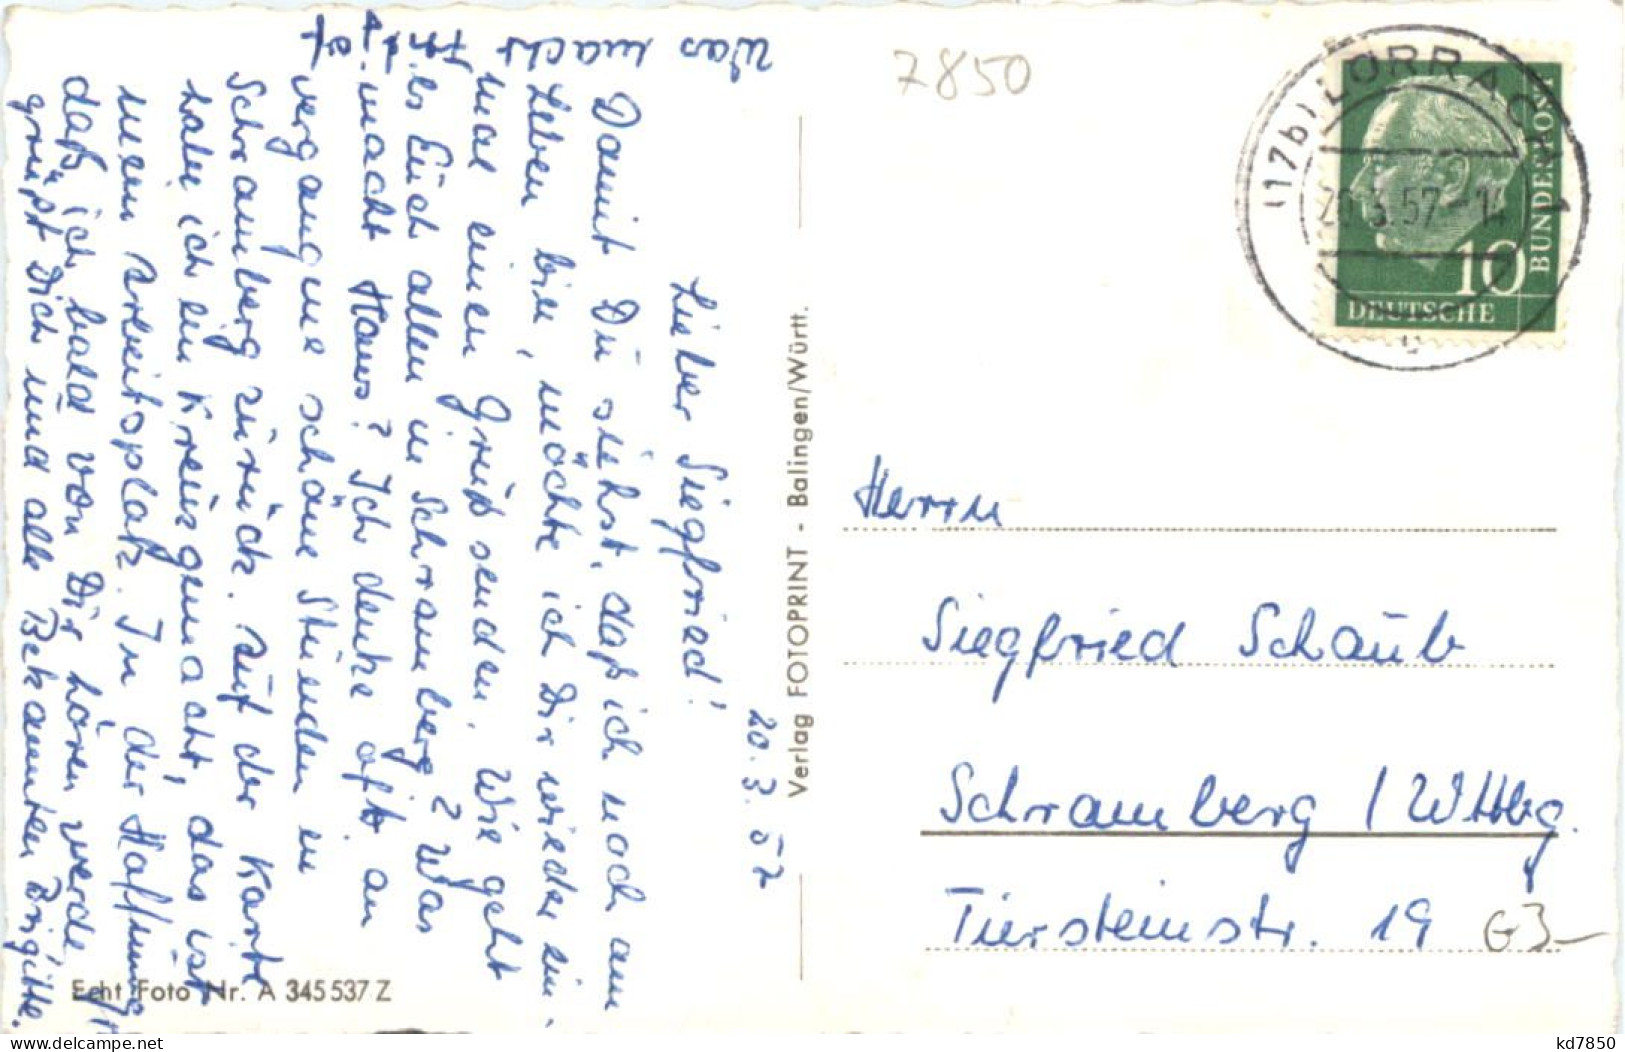 20.3.57
Lieber Siegfried!
Damit Du siehst, daß ich noch am
Leben bin, möchte ich Dir wieder ein-
mal einen Gruß senden. Wie geht
es Euch allen in Schramberg? Was
macht Hans? Ich denke oft an
vergangne schöne Stunden in
Schramberg zurück. Auf der Karte
habe ich ein Kreuz gemacht, das ist
mein Arbeitsplatz. In der Hoffnung,
daß ich bald von Dir hören werde,
grüßt Dich und alle Bekannten Brigitte.
Was macht
Verlag FOTOPRINT - Balingen/Württ.
Echt Foto Nr. A 345537 Z
7850
(17b) LÖRRACH 1
20.3.57-14
b
10
DEUTSCHE
BUNDESPOST
Herrn
Siegfried Schaub
Schramberg / Wttbg.
Tiersteinstr. 19
G3-
kd7850